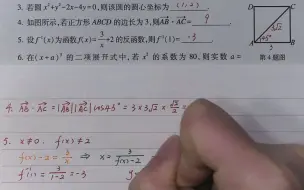 3. 若圆x²+y²-2x-4y=0,则该圆的圆心坐标为 (1,2) .
4. 如图所示,若正方形ABCD的边长为3,则AB·AC= 9 .
5. 设f⁻¹(x)为函数f(x)=3/x+2的反函数,则f⁻¹(1)= -3 .
6. 在(x+a)⁵的二项展开式中,若x³的系数为80,则实数a=
D C
3√2
45°
A 3 B
第4题图
4. AB·AC = |AB||AC|cos45° = 3×3√2×√2/2 =
5. x≠0. f(x)≠2
f(x)-2=3/x ⇒ x=3/(f(x)-2)
f⁻¹(1)=3/(1-2)=-3